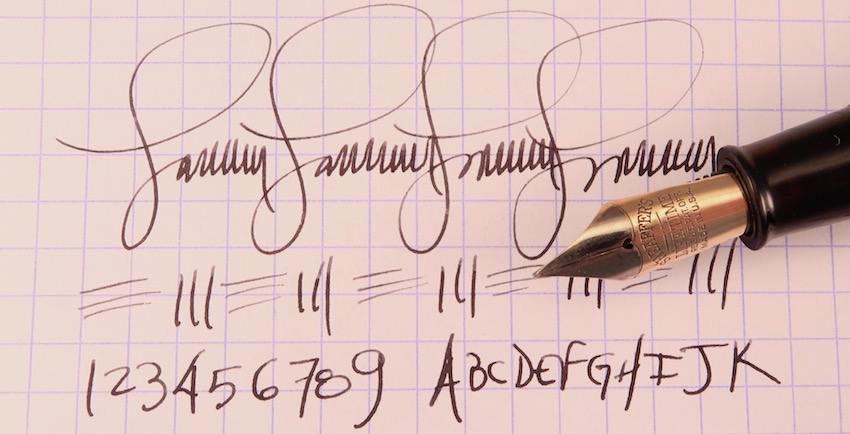 123456789 ABCDEFGHIJK
SHEAFFER'S
LIFETIME
MADE IN
U.S.A.